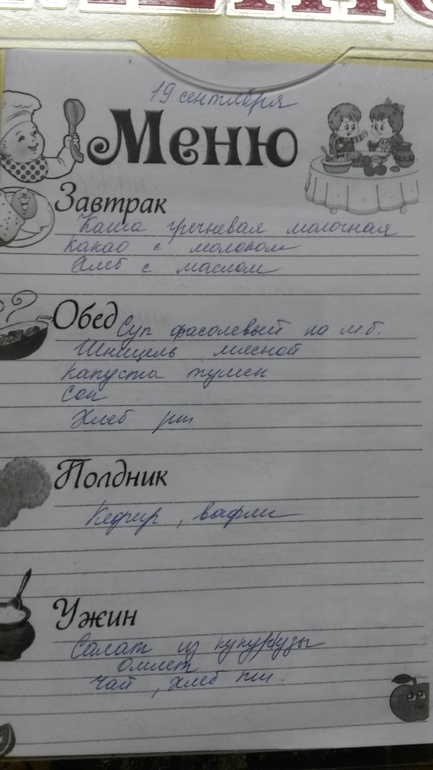 19 сентября
Меню
Завтрак
Каша гречневая молочная
Какао с молоком
Хлеб с маслом
Обед
Суп фасолевый на м.б.
Шницель мясной
Капуста тушен
Сок
Хлеб рж
Полдник
Кефир, вафли
Ужин
Салат из кукурузы
Омлет
Чай, хлеб пш.